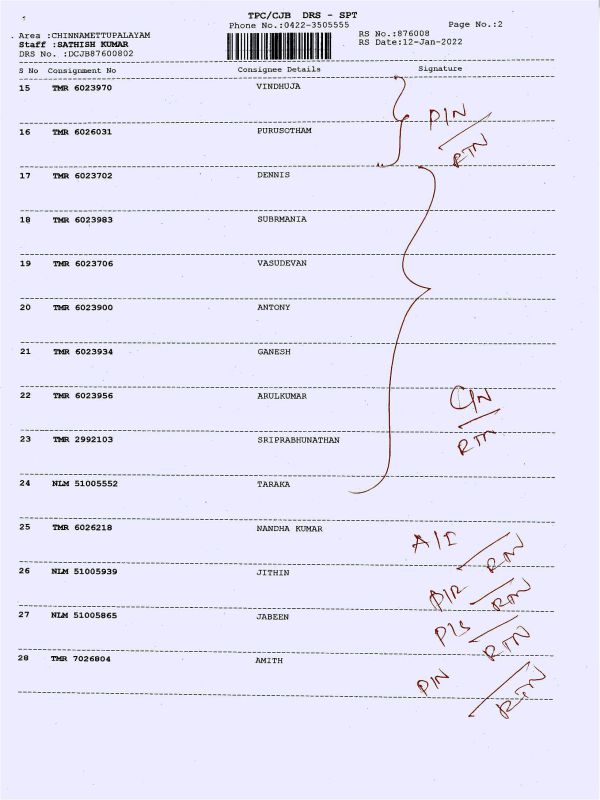 TPC/CJB DRS - SPT
Phone No.:0422-3505555
Page No.:2
Area :CHINNAMETTUPALAYAM
RS No.:876008
Staff :SATHISH KUMAR
RS Date:12-Jan-2022
DRS No. :DCJB87600802
S No Consignment No Consignee Details Signature
15 TMR 6023970 VINDHUJA
P/N
RTN
16 TMR 6026031 PURUSOTHAM
17 TMR 6023702 DENNIS
18 TMR 6023983 SUBRMANIA
19 TMR 6023706 VASUDEVAN
20 TMR 6023900 ANTONY
21 TMR 6023934 GANESH
22 TMR 6023956 ARULKUMAR
C/N
RTN
23 TMR 2992103 SRIPRABHUNATHAN
24 NLM 51005552 TARAKA
25 TMR 6026218 NANDHA KUMAR
A/I RTN
26 NLM 51005939 JITHIN
P/R RTN
27 NLM 51005865 JABEEN
P/S RTN
28 TMR 7026804 AMITH
P/N RTN